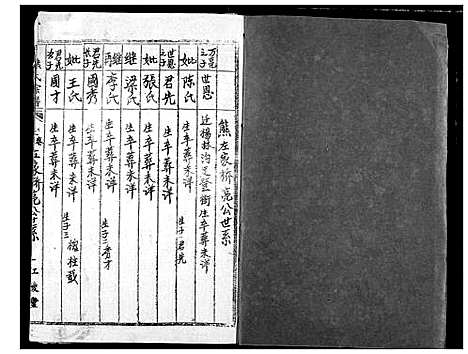 熊左家桥亮公世系
万邑之子 世恩 迁杨林沟芝登街生卒葬未详
妣 陈氏 生卒葬未详 生子 君先
世恩之子 君先 生卒葬未详
妣 张氏 生卒葬未详
继 梁氏 生卒葬未详
再继 李氏 生卒葬未详 生子二 秀才
君先长子 國秀 生卒葬未详
妣 王氏 生卒葬未详 生子三
君先次子 國才 生卒葬未详
左家桥亮公世系